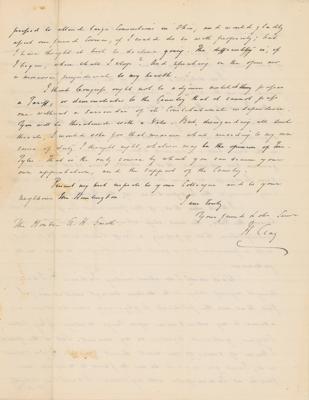 pressed to attend large Conventions in Ohio, and would gladly
afford our friend Corwin, if I could do so with propriety; but
I have thought it best to decline going. The difficulty is, if
I begin, where shall I stop? And speaking in the open air
is moreover prejudicial to my health.
I think Congress ought not to adjourn without passing
a Tariff, or demonstrate to the Country that it cannot pass
one without a surrender of its Constitutional independence.
You will be threatened with a Veto. But, disregarding all such
threats, I would vote for that measure which according to my own
sense of duty, I thought right, whatever may be the opinion of Mr.
Tyler. That is the only course by which you can secure your
own approbation, and the support of the Country.
Present my best respects to your Colleague and to your
neighbour Mr. Huntington
I am truly
Your friend & obt. Servt.
H. Clay
The Honble